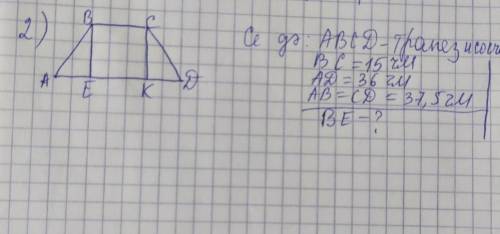 2)
B C
A E K D
Се дэ: ABCD - трапез исосч
BC = 15 см
AD = 36 см
AB = CD = 37,5 см
BE - ?